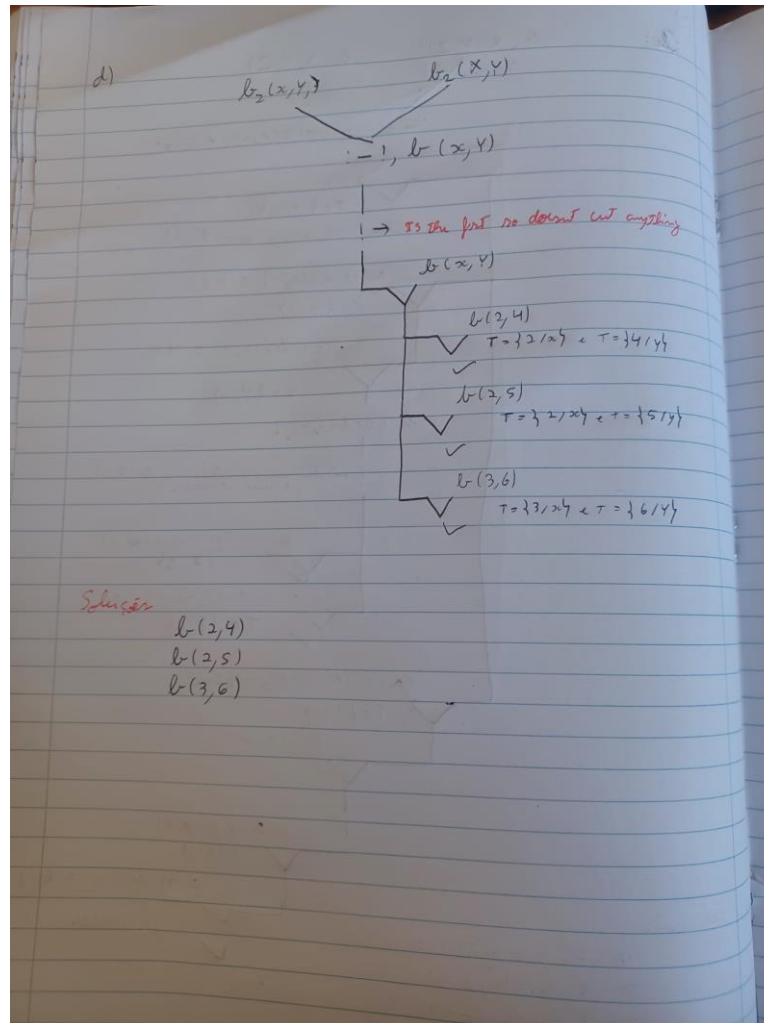 d)
b₂(x,Y,)
b₂(X,Y)
:- !, b(x,Y)
! → IS the first so doesnt cut anything
b(x,Y)
b(2,4)
T={2/x} e T={4/y}
✓
b(2,5)
T={2/x} e T={5/y}
✓
b(3,6)
T={3/x} e T={6/Y}
✓
Soluções
b(2,4)
b(2,5)
b(3,6)